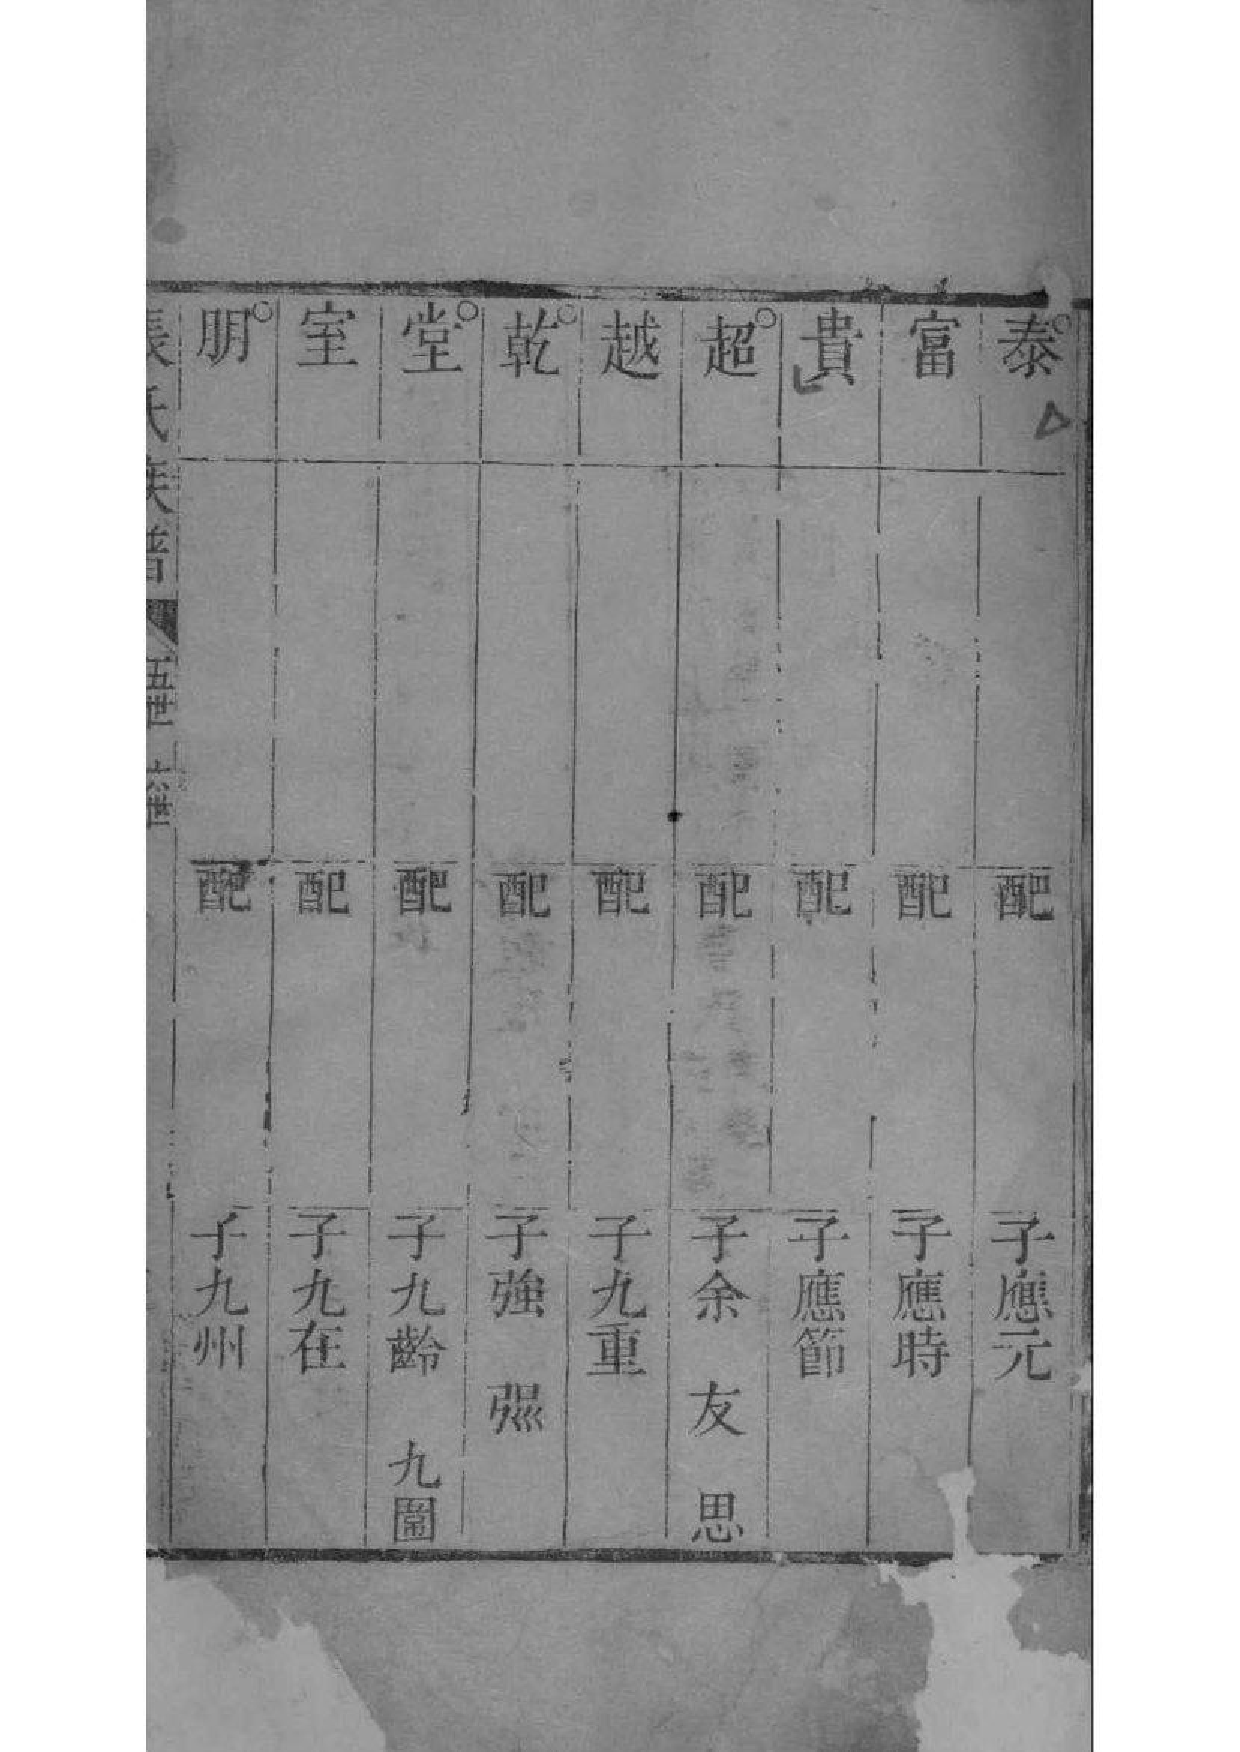 泰 配 子應元
富 配 子應時
貴 配 子應節
超 配 子余 友 思
越 配 子九重
乾 配 子強
堂 配 子九齡 九圖
室 配 子九在
朋 配 子九州
張氏族譜 五世 六世